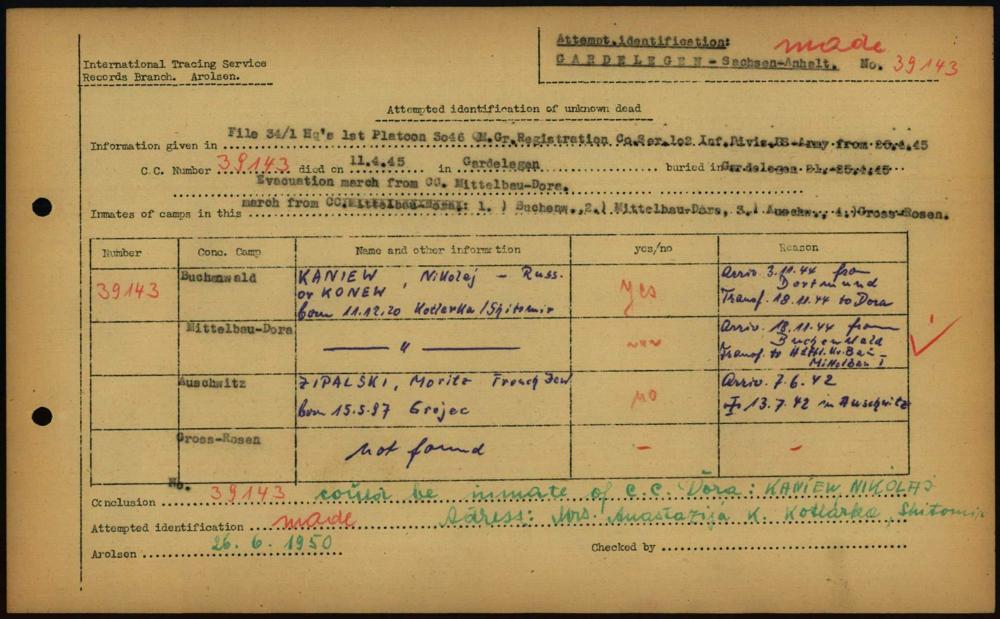 Attempt.identification: made
GARDELEGEN - Sachsen-Anhalt. No. 39143
International Tracing Service
Records Branch. Arolsen.
Attempted identification of unknown dead
Information given in File 34/1 Hq's 1st Platoon 3046 QM.Gr.Registration Co.Ser.1o2 Inf.Divis. Army from 25.4.45
C.C. Number 39143 died on 11.4.45 in Gardelegen buried in Gardelegen 21.-25.4.45
Evacuation march from CC. Mittelbau-Dora.
Inmates of camps in this march from CC.Mittelbau : 1.) Buchenw.,2.) Mittelbau-Dora, 3.) Auschw., 4.)Gross-Rosen.
Number Conc. Camp Name and other information yes/no Reason
39143 Buchenwald KANIEW, Nikolaj - Russ. yes Arriv. 3.11.44 from
or KONEW Dortmund
born 11.12.20 Kotlarka/Shitomir Transf. 18.11.44 to Dora
Mittelbau-Dora — " — Arriv. 18.11.44 from
Buchenwald
Transf. to Häftl.Kr.Bau-
Mittelbau I
Auschwitz ZIPALSKI, Moritz French Jew no Arriv. 7.6.42
born 15.5.97 Grojec 13.7.42 in Auschwitz
Gross-Rosen not found - -
Conclusion No. 39143 could be inmate of C.C. Dora: KANIEW NIKOLAJ
Attempted identification made Adress: Mrs. Anastazija K. Kotlarka, Shitomir
Arolsen 26.6.1950 Checked by